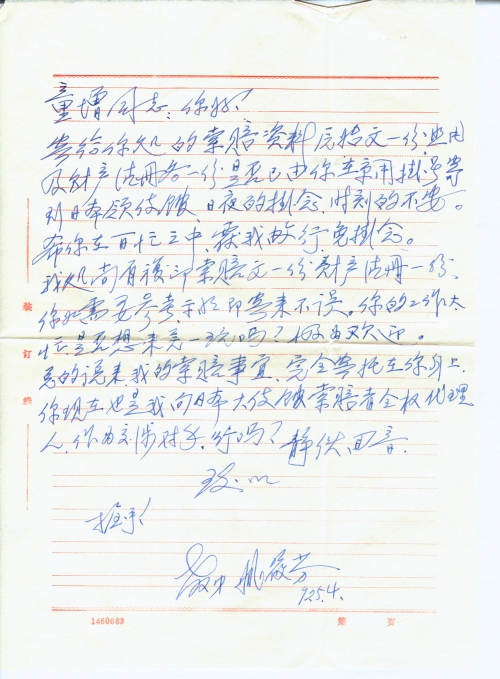 童增同志：你好！
寄给你处的索赔资料原始文一份，照片
及财产清册各一份是否已由你在京用掛号寄
到日本领使馆，日夜的掛念，时刻的不安。
希你在百忙之中，霖我的行免掛念。
我处尚有複印索赔文一份财产清册一份，
你如需要参考示如即寄来不误。你的工作太
忙，是否想来京一玩吗？极为欢迎。
总的说来我的索赔事宜，完全寄托在你身上，
你现在也是我向日本大使馆索赔者全权代理
人，作为交涉对手，行吗？静候回音。
致以
握手！
925.4.
装
订
线
1460683
第 页